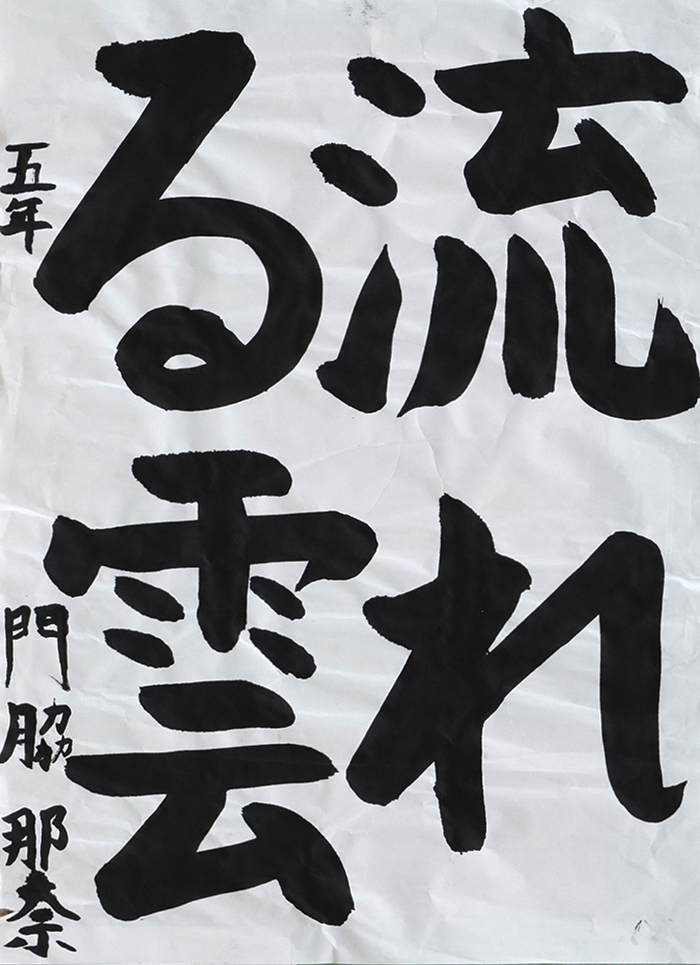 流れ
る雲
五年 門脇那奈